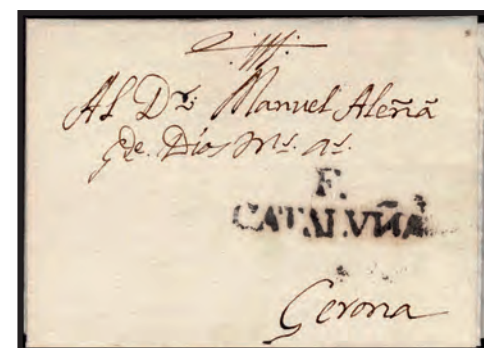 Al Dr. Manuel Aleñá
g.de Dios ms. as.
F.
CATALVÑA
Gerona